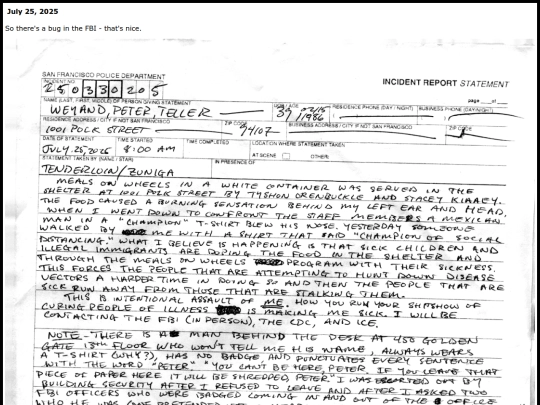 July 25, 2025
So there's a bug in the FBI - that's nice.
SAN FRANCISCO POLICE DEPARTMENT
INCIDENT REPORT STATEMENT
INCIDENT NO.
250330205
page of
NAME (LAST, FIRST, MIDDLE) OF PERSON GIVING STATEMENT
DOB / AGE
RESIDENCE PHONE (DAY / NIGHT)
BUSINESS PHONE (DAY/NIGHT)
WEYAND, PETER, TELLER
39 02/15/1986
RESIDENCE ADDRESS / CITY IF NOT SAN FRANCISCO
ZIP CODE
BUSINESS ADDRESS / CITY IF NOT SAN FRANCISCO
ZIP CODE
1001 POLK STREET
94107
DATE OF STATEMENT
TIME STARTED
TIME COMPLETED
LOCATION WHERE STATEMENT TAKEN
JULY 25, 2025
8:00 AM
AT SCENE
OTHER:
STATEMENT TAKEN BY (NAME / STAR)
IN PRESENCE OF
TENDERLOIN/ZUNIGA
MEALS ON WHEELS IN A WHITE CONTAINER WAS SERVED IN THE
SHELTER AT 1001 POLK STREET BY TYSHON ORENBUCKLE AND STACEY KIAAEY.
THE FOOD CAUSED A BURNING SENSATION BEHIND MY LEFT EAR AND HEAD.
WHEN I WENT DOWN TO CONFRONT THE STAFF MEMBERS A MEXICAN
MAN IN A "CHAMPION" T-SHIRT BLEW HIS NOSE. YESTERDAY SOMEONE
WALKED BY ME WITH A SHIRT THAT SAID "CHAMPION OF SOCIAL
DISTANCING." WHAT I BELIEVE IS HAPPENING IS THAT SICK CHILDREN AND
ILLEGAL IMMIGRANTS ARE DOPING THE FOOD IN THE SHELTER AND
THROUGH THE MEALS ON WHEELS PROGRAM WITH THEIR SICKNESS.
THIS FORCES THE PEOPLE THAT ARE ATTEMPTING TO HUNT DOWN DISEASE
VECTORS A HARDER TIME IN DOING SO AND THEN THE PEOPLE THAT ARE
SICK RUN AWAY FROM THOSE THAT ARE STALKING THEM.
THIS IS INTENTIONAL ASSAULT OF ME. HOW YOU RUN YOUR SHIPSHOW OF
CURING PEOPLE OF ILLNESS IS MAKING ME SICK. I WILL BE
CONTACTING THE FBI (IN PERSON), THE CDC, AND ICE.
NOTE - THERE IS A MAN BEHIND THE DESK AT 450 GOLDEN
GATE 13TH FLOOR WHO WON'T TELL ME HIS NAME, ALWAYS WEARS
A T-SHIRT (WHY?), HAS NO BADGE AND PUNCTUATES EVERY SENTENCE
WITH THE WORD "PETER." "YOU CAN'T BE HERE, PETER. IF YOU LEAVE THAT
PIECE OF PAPER HERE IT WILL BE SHREDDED, PETER." I WAS ESCORTED OUT BY
BUILDING SECURITY AFTER I REFUSED TO LEAVE AND AFTER I ASKED TWO
FBI OFFICERS WHO WERE BADGED COMING IN AND OUT OF THE OFFICE